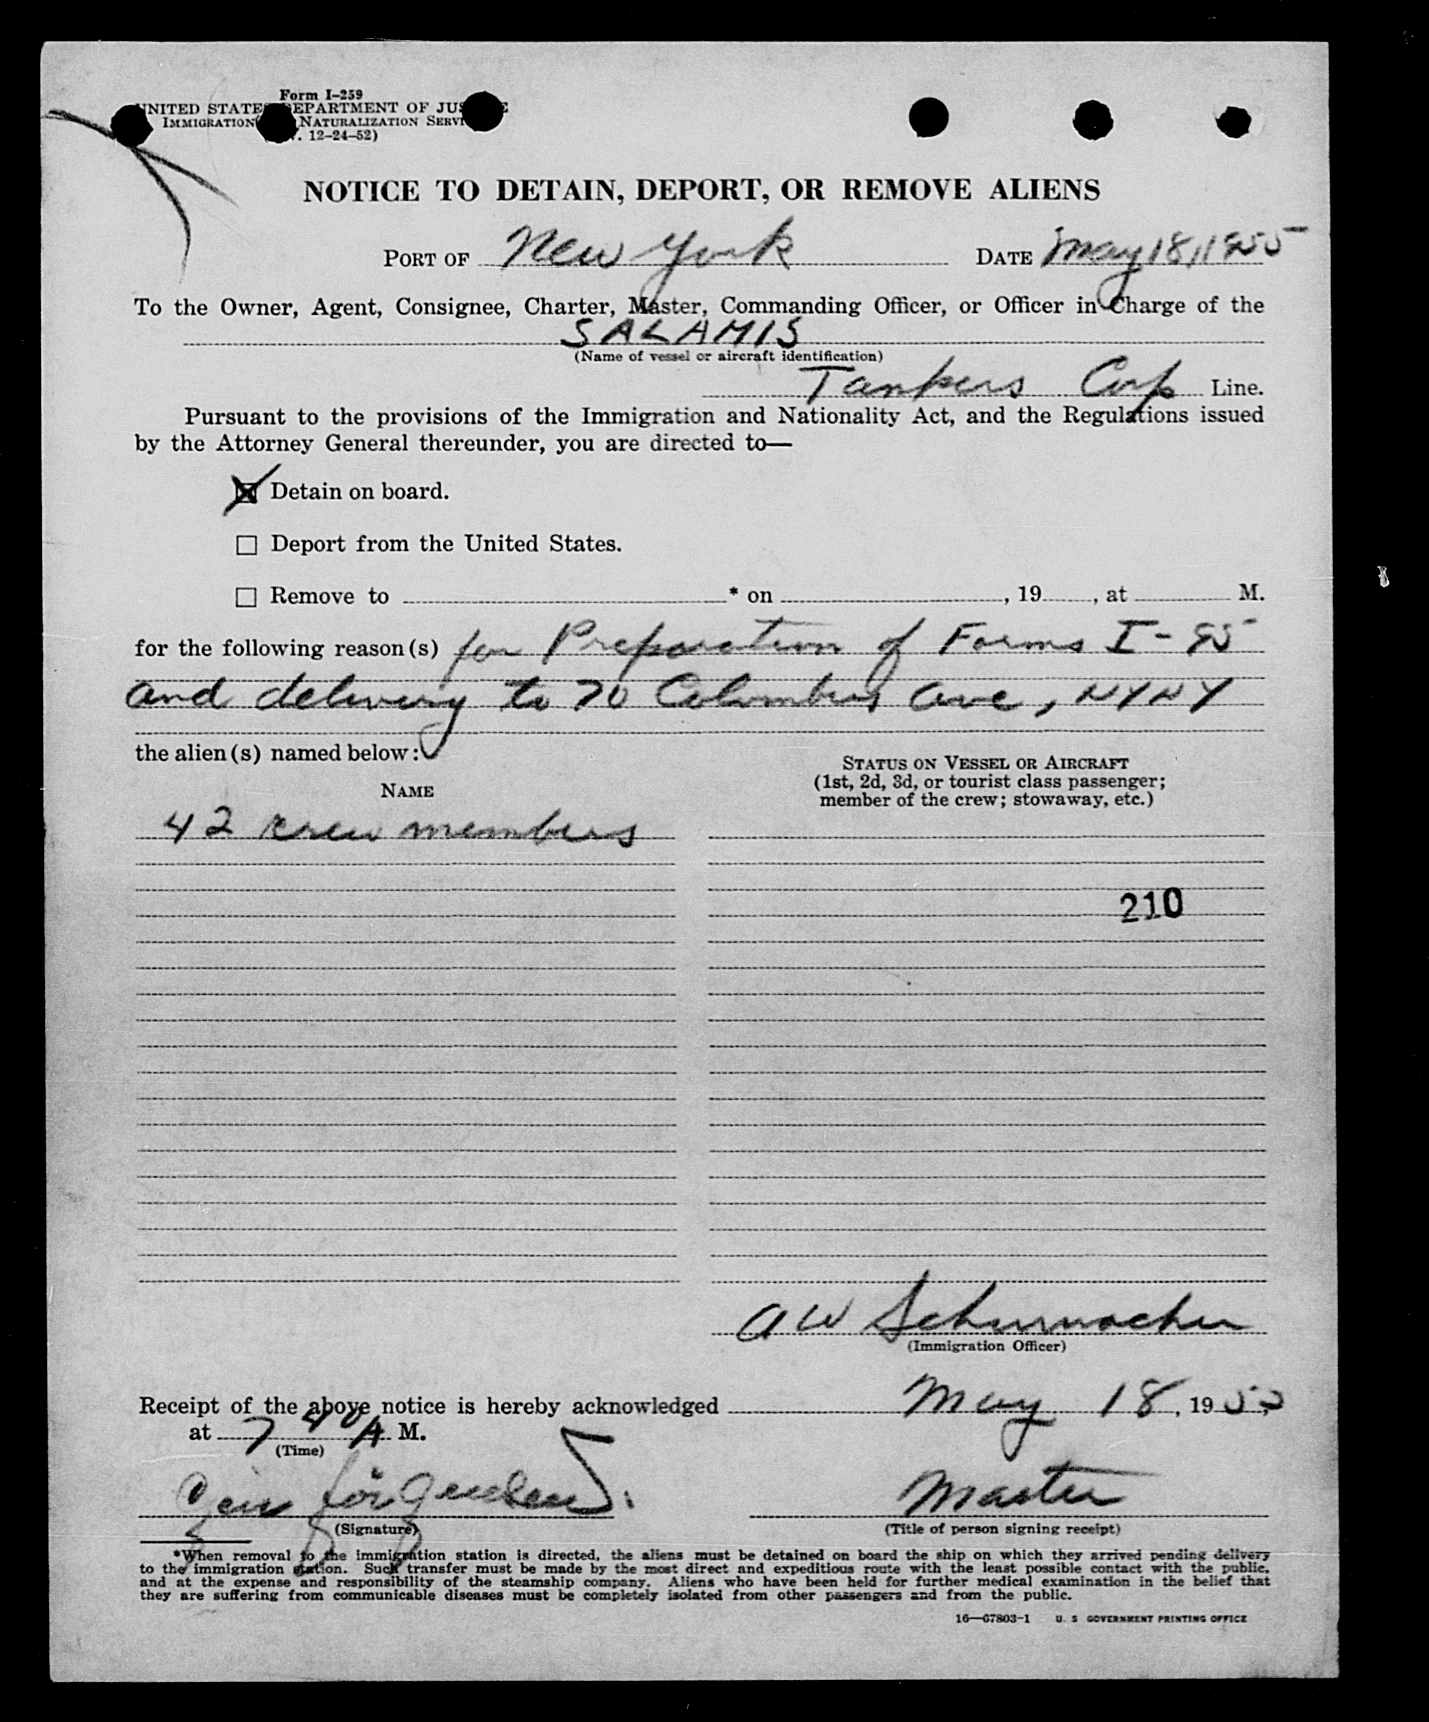 Form I-259
UNITED STATES DEPARTMENT OF JUS
IMMIGRATION NATURALIZATION SERVI
. 12-24-52)
NOTICE TO DETAIN, DEPORT, OR REMOVE ALIENS
PORT OF New York DATE May 18, 1955
To the Owner, Agent, Consignee, Charter, Master, Commanding Officer, or Officer in Charge of the
SALAMIS
(Name of vessel or aircraft identification)
Tankers Corp Line.
Pursuant to the provisions of the Immigration and Nationality Act, and the Regulations issued
by the Attorney General thereunder, you are directed to—
☒ Detain on board.
☐ Deport from the United States.
☐ Remove to * on , 19 , at M.
for the following reason(s) for Preparation of Forms I-95
and delivery to 70 Columbus Ave, NYNY
the alien(s) named below:
NAME
STATUS ON VESSEL OR AIRCRAFT
(1st, 2d, 3d, or tourist class passenger;
member of the crew; stowaway, etc.)
42 crew members
210
AW Schumacher
(Immigration Officer)
Receipt of the above notice is hereby acknowledged May 18, 1955,
at 7 40 A M.
(Time)
Master
(Signature) (Title of person signing receipt)
*When removal to the immigration station is directed, the aliens must be detained on board the ship on which they arrived pending delivery
to the immigration station. Such transfer must be made by the most direct and expeditious route with the least possible contact with the public,
and at the expense and responsibility of the steamship company. Aliens who have been held for further medical examination in the belief that
they are suffering from communicable diseases must be completely isolated from other passengers and from the public.
16—67803-1 U. S GOVERNMENT PRINTING OFFICE